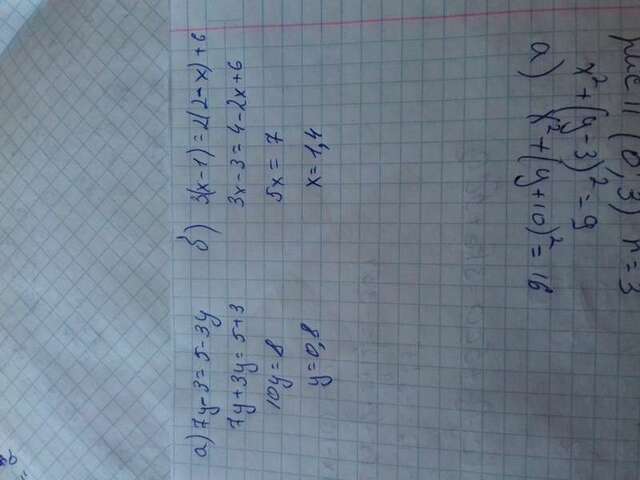 а) 7y-3=5-3y
7y+3y=5+3
10y=8
y=0,8
б) 3(x-1)=2(2-x)+6
3x-3=4-2x+6
5x=7
x=1,4
а) x²+(y+10)²=16
x²+(y-3)²=9
(0;3) r=3